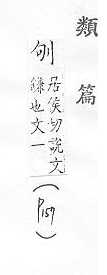 類篇
居侯切說文
鎌也文一
(P.157)